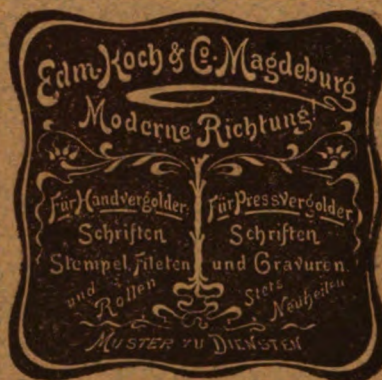 Edm. Koch & Co. Magdeburg
Moderne Richtung!
Für Handvergolder:
Schriften
Stempel, Fileten
und Rollen
Für Pressvergolder
Schriften
und Gravuren.
Stets Neuheiten
MUSTER ZU DIENSTEN